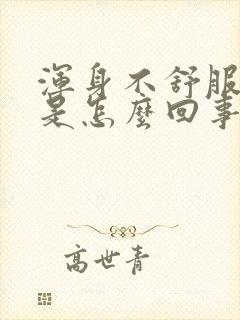 渾身不舒服
是怎麼回事
高世青